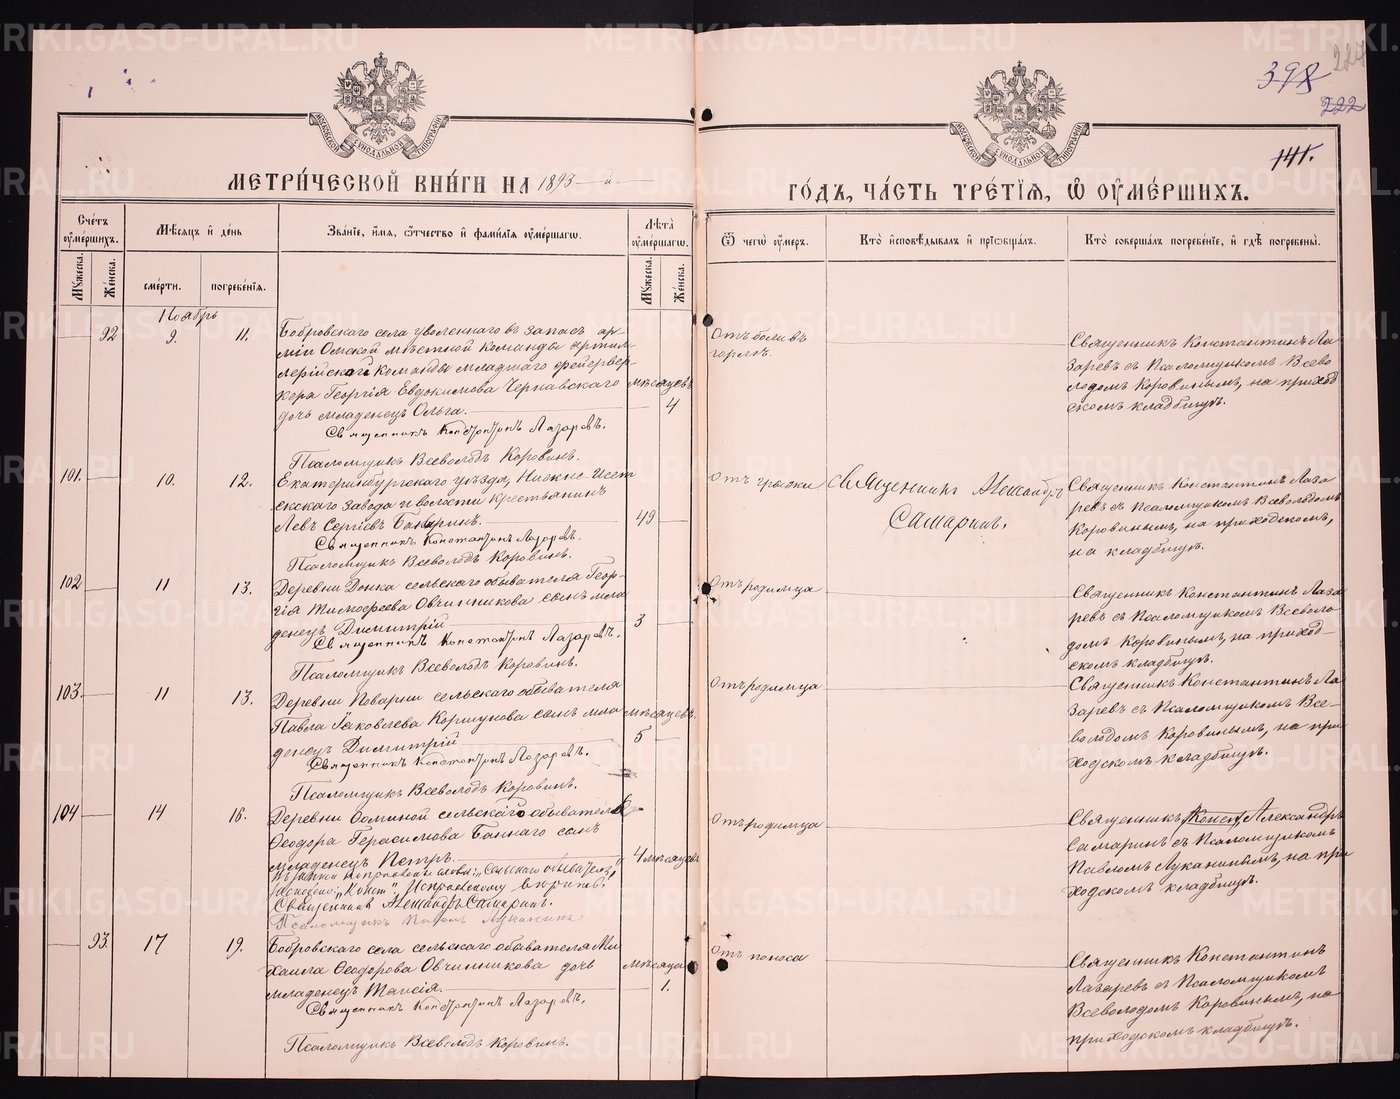 METRIKI.GASO-URAL.RU
398
227
222
141.
МОСКОВСКОЙ СѴНОДАЛЬНОЙ ТИПОГРАФІИ
МЕТРИ́ЧЕСКОЙ КНИ́ГИ НА 1893 й
ГО́ДЪ, ЧА́СТЬ ТРЕ́ТІЯ, Ѡ ОУМЕ́РШИХЪ.
Сче́тъ оумершихъ.
Мꙋжеска.
Же́нска.
Мѣсяцъ и де́нь
сме́рти.
погребе́нія.
Зва́ніе, и́мя, ѻтчество и фами́лія оуме́ршагѡ.
Лѣта̀ оуме́ршагѡ.
Мꙋжеска.
Же́нска.
Ѿ чегѡ̀ оумеръ.
Кто̀ исповѣдывалъ и пріѡбща́лъ.
Кто̀ соверша́лъ погребе́ніе, и гдѣ̀ погребены̀.
Ноябрь
92
9.
11.
Бобровскаго села уволеннаго въ запасъ ар-
міи Омской мѣстной команды артил-
лерійской команды младшаго фейервер-
кера Георгія Евдокимова Чернавскаго
дочь младенецъ Ольга.
мѣсяцевъ
4
Священникъ Константинъ Лазаревъ.
Псаломщикъ Всеволодъ Коровинъ.
Отъ боли въ
горлѣ.
Священникъ Константинъ Ла-
заревъ съ Псаломщикомъ Всево-
лодомъ Коровинымъ, на приход
скомъ кладбищѣ.
101.
10.
12.
Екатеринбургскаго уѣзда, Нижне-Исет
скаго завода и волости крестьянинъ
Левъ Сергіевъ
49
Священникъ Константинъ Лазаревъ.
Псаломщикъ Всеволодъ Коровинъ.
Отъ
Священникъ Александръ
Сапаринъ.
Священникъ Константинъ Лаза
ревъ съ Псаломщикомъ Всеволодомъ
Коровинымъ, на приходскомъ,
на кладбищѣ.
102
11
13.
Деревни сельскаго обывателя Геор-
гія Тимофеева Овчинникова сынъ мла
денецъ Димитрій
3
Священникъ Константинъ Лазаревъ.
Псаломщикъ Всеволодъ Коровинъ.
Отъ родимца
Священникъ Константинъ Лаза
ревъ съ Псаломщикомъ Всеволо-
домъ Коровинымъ, на приход-
скомъ кладбищѣ.
103.
11
13.
Деревни Поварни сельскаго обывателя
Павла Іаковлева Коршунова сынъ мла
денецъ Димитрій
мѣсяцевъ.
5
Священникъ Константинъ Лазаревъ.
Псаломщикъ Всеволодъ Коровинъ.
Отъ родимца
Священникъ Константинъ Ла
заревъ съ Псаломщикомъ Все-
володомъ Коровинымъ, на при
ходскомъ кладбищѣ.
104
14
16.
Деревни сельскаго обывателя
Ѳеодора Герасимова сынъ
младенецъ Петръ.
4 мѣсяцевъ
"сельскаго обывателя",
"Конст". Исправленному вѣрить.
Священникъ Александръ Сапаринъ.
Псаломщикъ Павелъ Луканинъ
Отъ родимца
Священникъ Конст Александръ
Сапаринъ съ Псаломщикомъ
Павломъ Луканинымъ, на при
ходскомъ кладбищѣ.
93.
17
19.
Бобровскаго села сельскаго обывателя Ми
хаила Ѳеодорова Овчинникова дочь
младенецъ Таисія.
мѣсяца
1.
Священникъ Константинъ Лазаревъ.
Псаломщикъ Всеволодъ Коровинъ.
Отъ поноса
Священникъ Константинъ
Лазаревъ съ Псаломщикомъ
Всеволодомъ Коровинымъ, на
приходскомъ кладбищѣ.